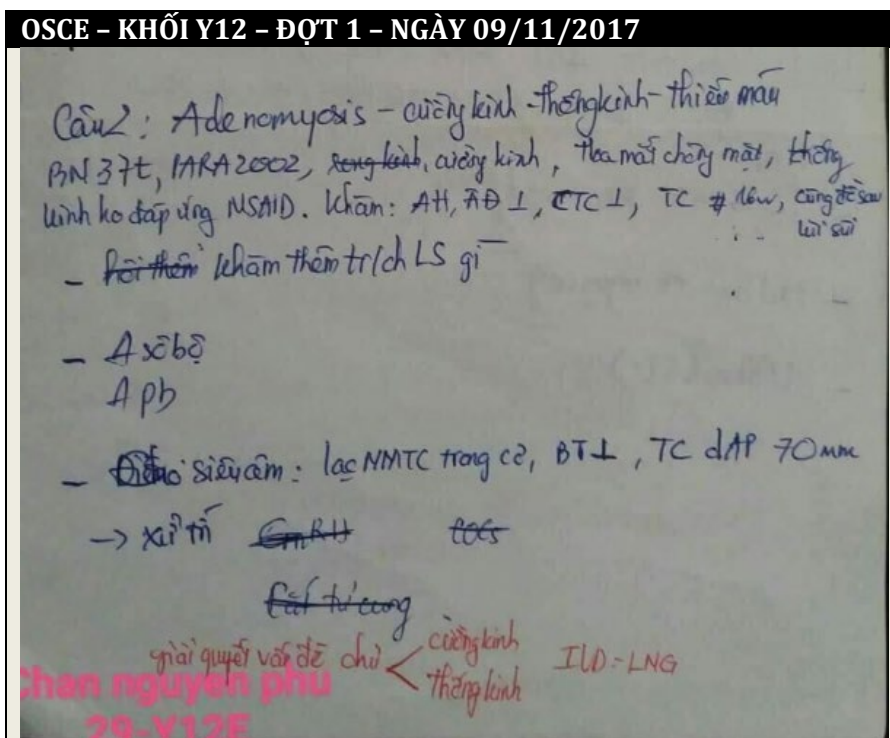 OSCE – KHỐI Y12 – ĐỢT 1 – NGÀY 09/11/2017
Câu 2: Adenomyosis – cường kinh - thống kinh - thiếu máu
BN 37t, PARA 2002, rong kinh, cường kinh, hoa mắt chóng mặt, thống
kinh ko đáp ứng NSAID. Khám: AH, ÂĐ ⊥, CTC ⊥, TC # 16w, cùng đồ sau
lùi sùi
– hỏi thêm khám thêm tr/ch LS gì
– ∆ sơ bộ
∆ pb
– siêu âm: lạc NMTC trong cơ, BT ⊥, TC dAP 70 mm
→ xử trí GnRH COCs
Cắt tử cung
giải quyết vấn đề chứ < cường kinh
thống kinh
IUD-LNG
Chan nguyen phu
29-Y12E